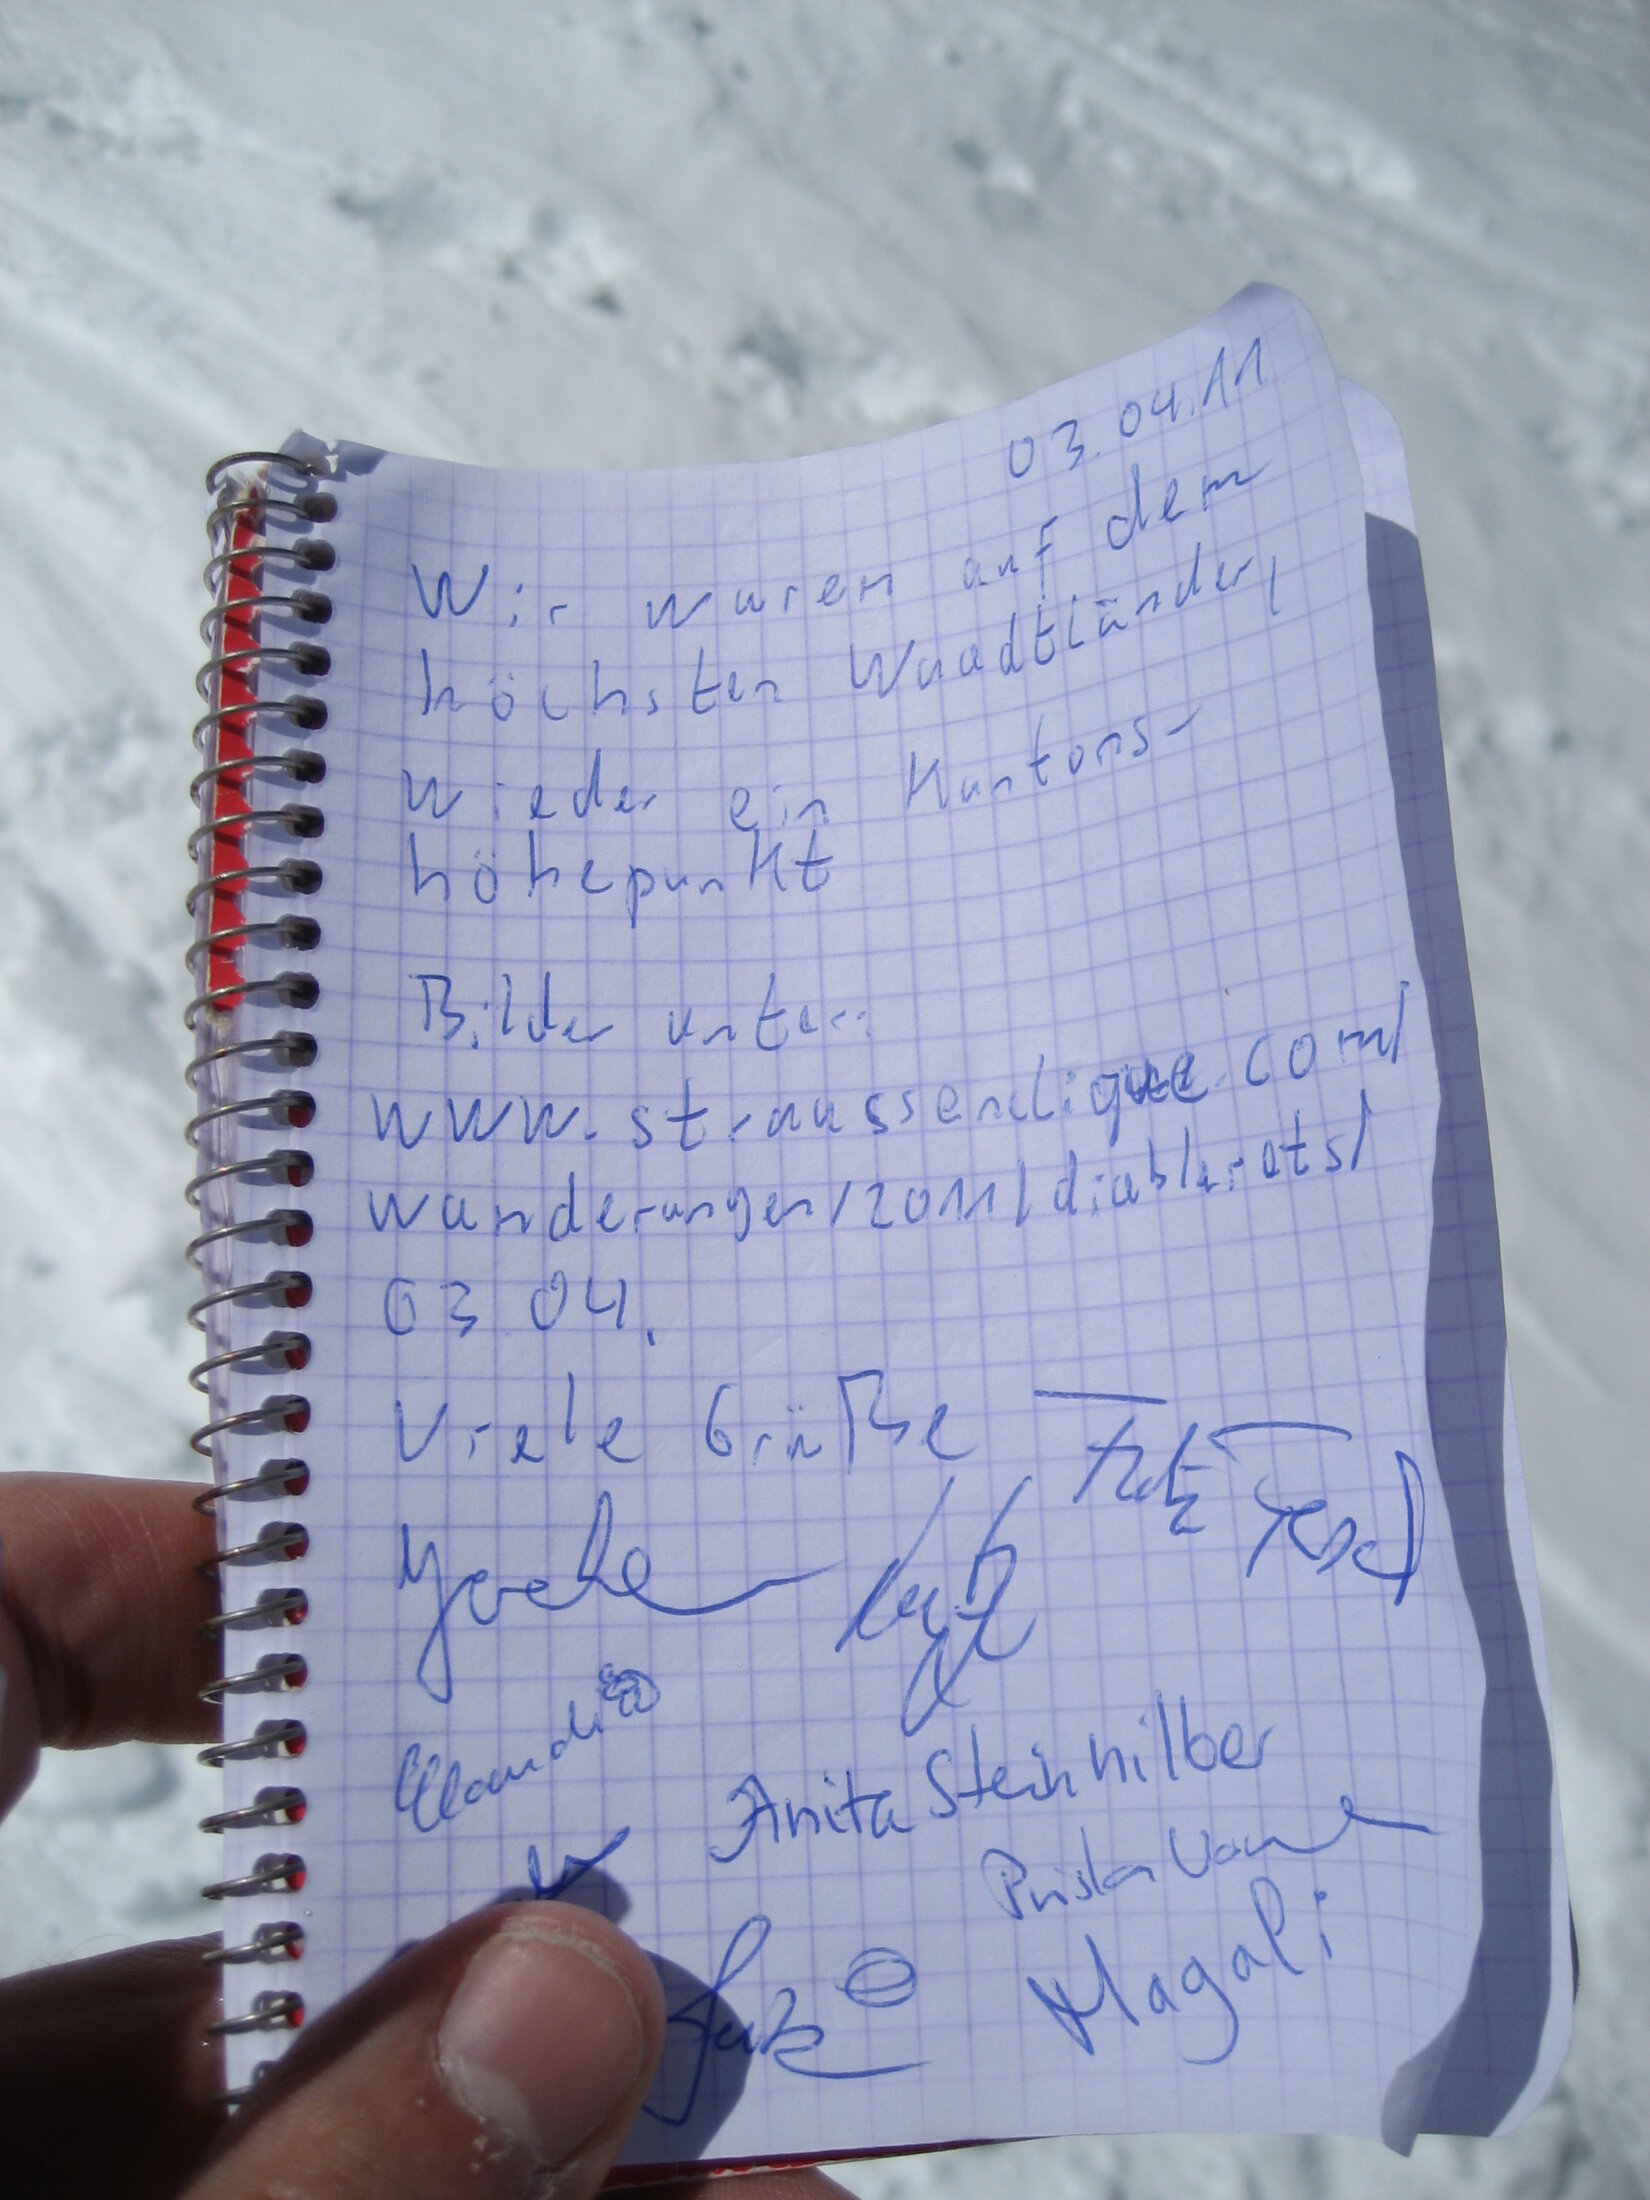 03.04.11
Wir waren auf dem
höchsten Waadtländer,
wieder ein Kantons-
höhepunkt
Bilder unter:
www.straussenclique.com/
wanderungen/2011/diablerets/
03 04.
Viele Grüße
Jochen
Claudia
Anita Steinhilber
Magali